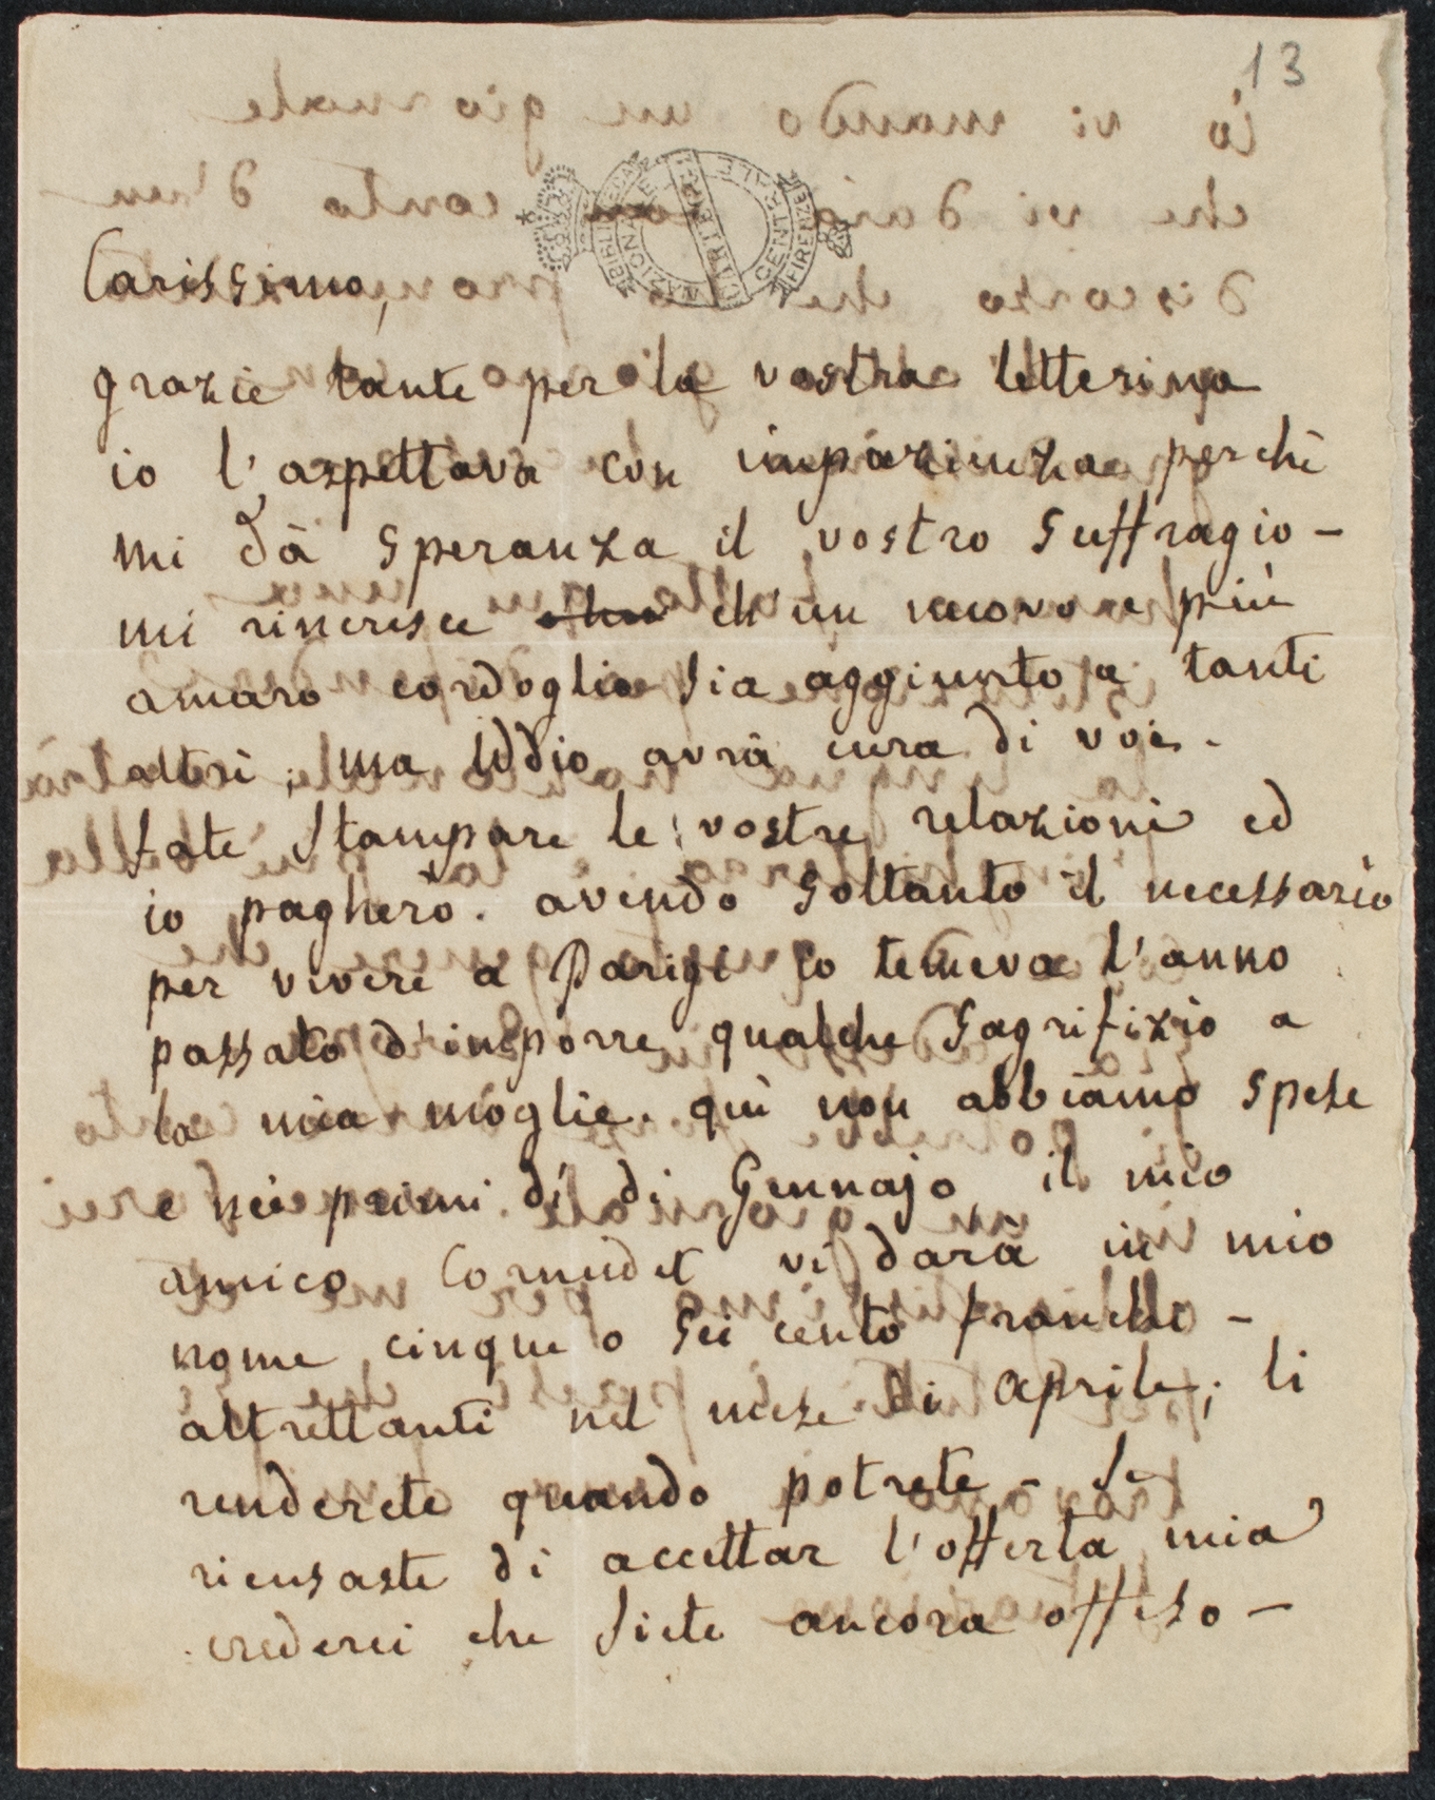 13
BIBLIOTECA NAZIONALE CENTRALE FIRENZE
Carissimo,
grazie tante per la vostra letterina
io l'aspettava con impazienza perchè
mi dà speranza il vostro suffragio -
mi rincresce ch'un nuovo e più
amaro cordoglio sia aggiunto a tanti
altri, ma Iddio avrà cura di voi.
fate stampare le vostre relazioni ed
io pagherò. avendo soltanto il necessario
per vivere a Parigi io temeva l'anno
passato d'imporre qualche sagrifizio a
la mia moglie. quì non abbiamo spese
e nei primi dí di Gennajo il mio
amico Cornudet vi darà in mio
nome cinque o sei cento franchi -
altrettanti nel mese di aprile; li
renderete quando potrete - se
ricusaste di accettar l'offerta mia
crederei che siete ancora offeso -